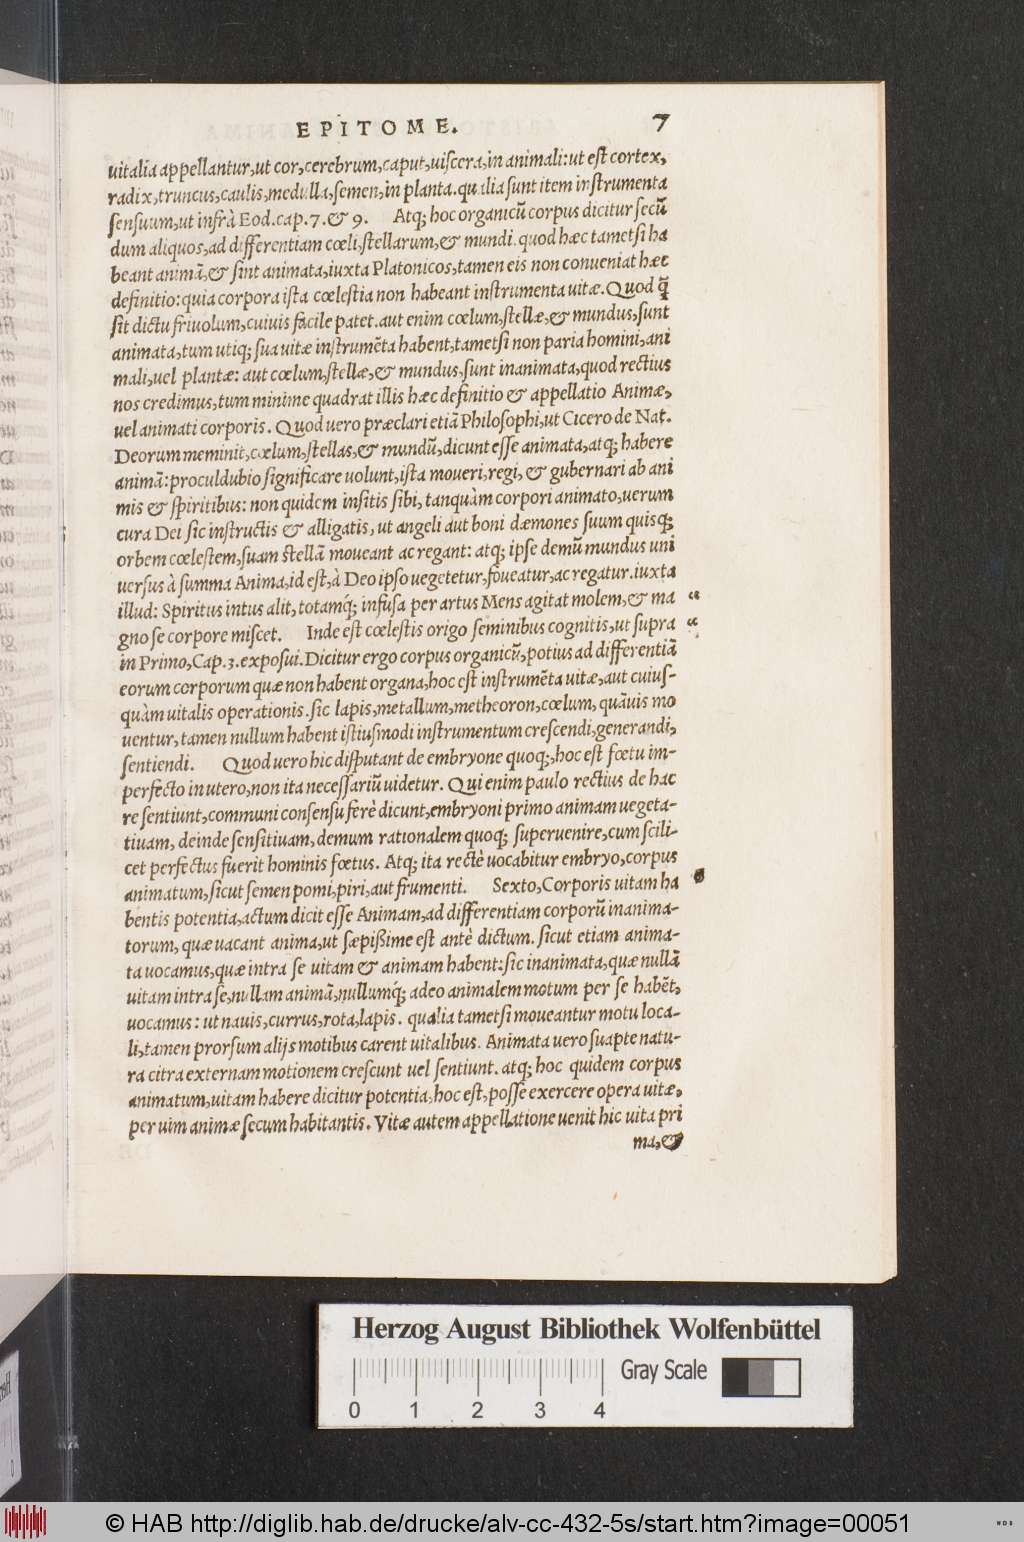 EPITOME. 7
uitalia appellantur,ut cor,cerebrum,caput,uiscera,in animali:ut est cortex,
radix,truncus,caulis,medulla,semen,in planta.qualia sunt item instrumenta
sensuum,ut infrà Eod.cap.7.& 9. Atq; hoc organicũ corpus dicitur secũ
dum aliquos,ad differentiam cœli,stellarum,& mundi.quod hæc tametsi ha
beant animã,& sint animata,iuxta Platonicos,tamen eis non conueniat hæc
definitio:quia corpora ista cœlestia non habeant instrumenta uitæ.Quod q̃
sit dictu friuolum,cuiuis facile patet.aut enim cœlum,stellæ,& mundus,sunt
animata,tum utiq; sua uitæ instrumẽta habent,tametsi non paria homini,ani
mali,uel plantæ: aut cœlum,stellæ,& mundus,sunt inanimata,quod rectius
nos credimus,tum minime quadrat illis hæc definitio & appellatio Animæ,
uel animati corporis. Quod uero præclari etiã Philosophi,ut Cicero de Nat.
Deorum meminit,cœlum,stellas,& mundũ,dicunt esse animata,atq; habere
animã:proculdubio significare uolunt,ista moueri,regi, & gubernari ab ani
mis & spiritibus: non quidem insitis sibi,tanquàm corpori animato,uerum
cura Dei sic instructis & alligatis, ut angeli aut boni dæmones suum quisq;
orbem cœlestem,suam stellã moueant ac regant: atq; ipse demũ mundus uni
uersus à summa Anima,id est,à Deo ipso uegetetur,foueatur,ac regatur.iuxta
illud: Spiritus intus alit, totamq́; infusa per artus Mens agitat molem,& ma “
gno se corpore miscet. Inde est cœlestis origo seminibus cognitis,ut supra “
in Primo,Cap.3.exposui.Dicitur ergo corpus organicũ,potius ad differentiã
eorum corporum quæ non habent organa,hoc est instrumẽta uitæ,aut cuius-
quàm uitalis operationis.sic lapis,metallum,metheoron,cœlum, quãuis mo
uentur,tamen nullum habent istiusmodi instrumentum crescendi,generandi,
sentiendi. Quod uero hic disputant de embryone quoq;,hoc est fœtu im-
perfecto in utero,non ita necessariũ uidetur. Qui enim paulo rectius de hac
re sentiunt,communi consensu ferè dicunt,embryoni primo animam uegeta-
tiuam, deinde sensitiuam,demum rationalem quoq; superuenire,cum scili-
cet perfectus fuerit hominis fœtus. Atq; ita rectè uocabitur embryo,corpus
animatum,sicut semen pomi,piri,aut frumenti. Sexto,Corporis uitam ha
bentis potentia,actum dicit esse Animam,ad differentiam corporũ inanima-
torum, quæ uacant anima,ut sæpißime est antè dictum. sicut etiam anima-
ta uocamus,quæ intra se uitam & animam habent:sic inanimata,quæ nullã
uitam intra se,nullam animã,nullumq́; adeo animalem motum per se habẽt,
uocamus: ut nauis,currus,rota,lapis. qualia tametsi moueantur motu loca-
li,tamen prorsum alijs motibus carent uitalibus. Animata uero suapte natu-
ra citra externam motionem crescunt uel sentiunt. atq; hoc quidem corpus
animatum,uitam habere dicitur potentia,hoc est,posse exercere opera uitæ,
per uim animæ secum habitantis. Vitæ autem appellatione uenit hic uita pri
ma,&
Herzog August Bibliothek Wolfenbüttel
Gray Scale
0 1 2 3 4
© HAB http://diglib.hab.de/drucke/alv-cc-432-5s/start.htm?image=00051